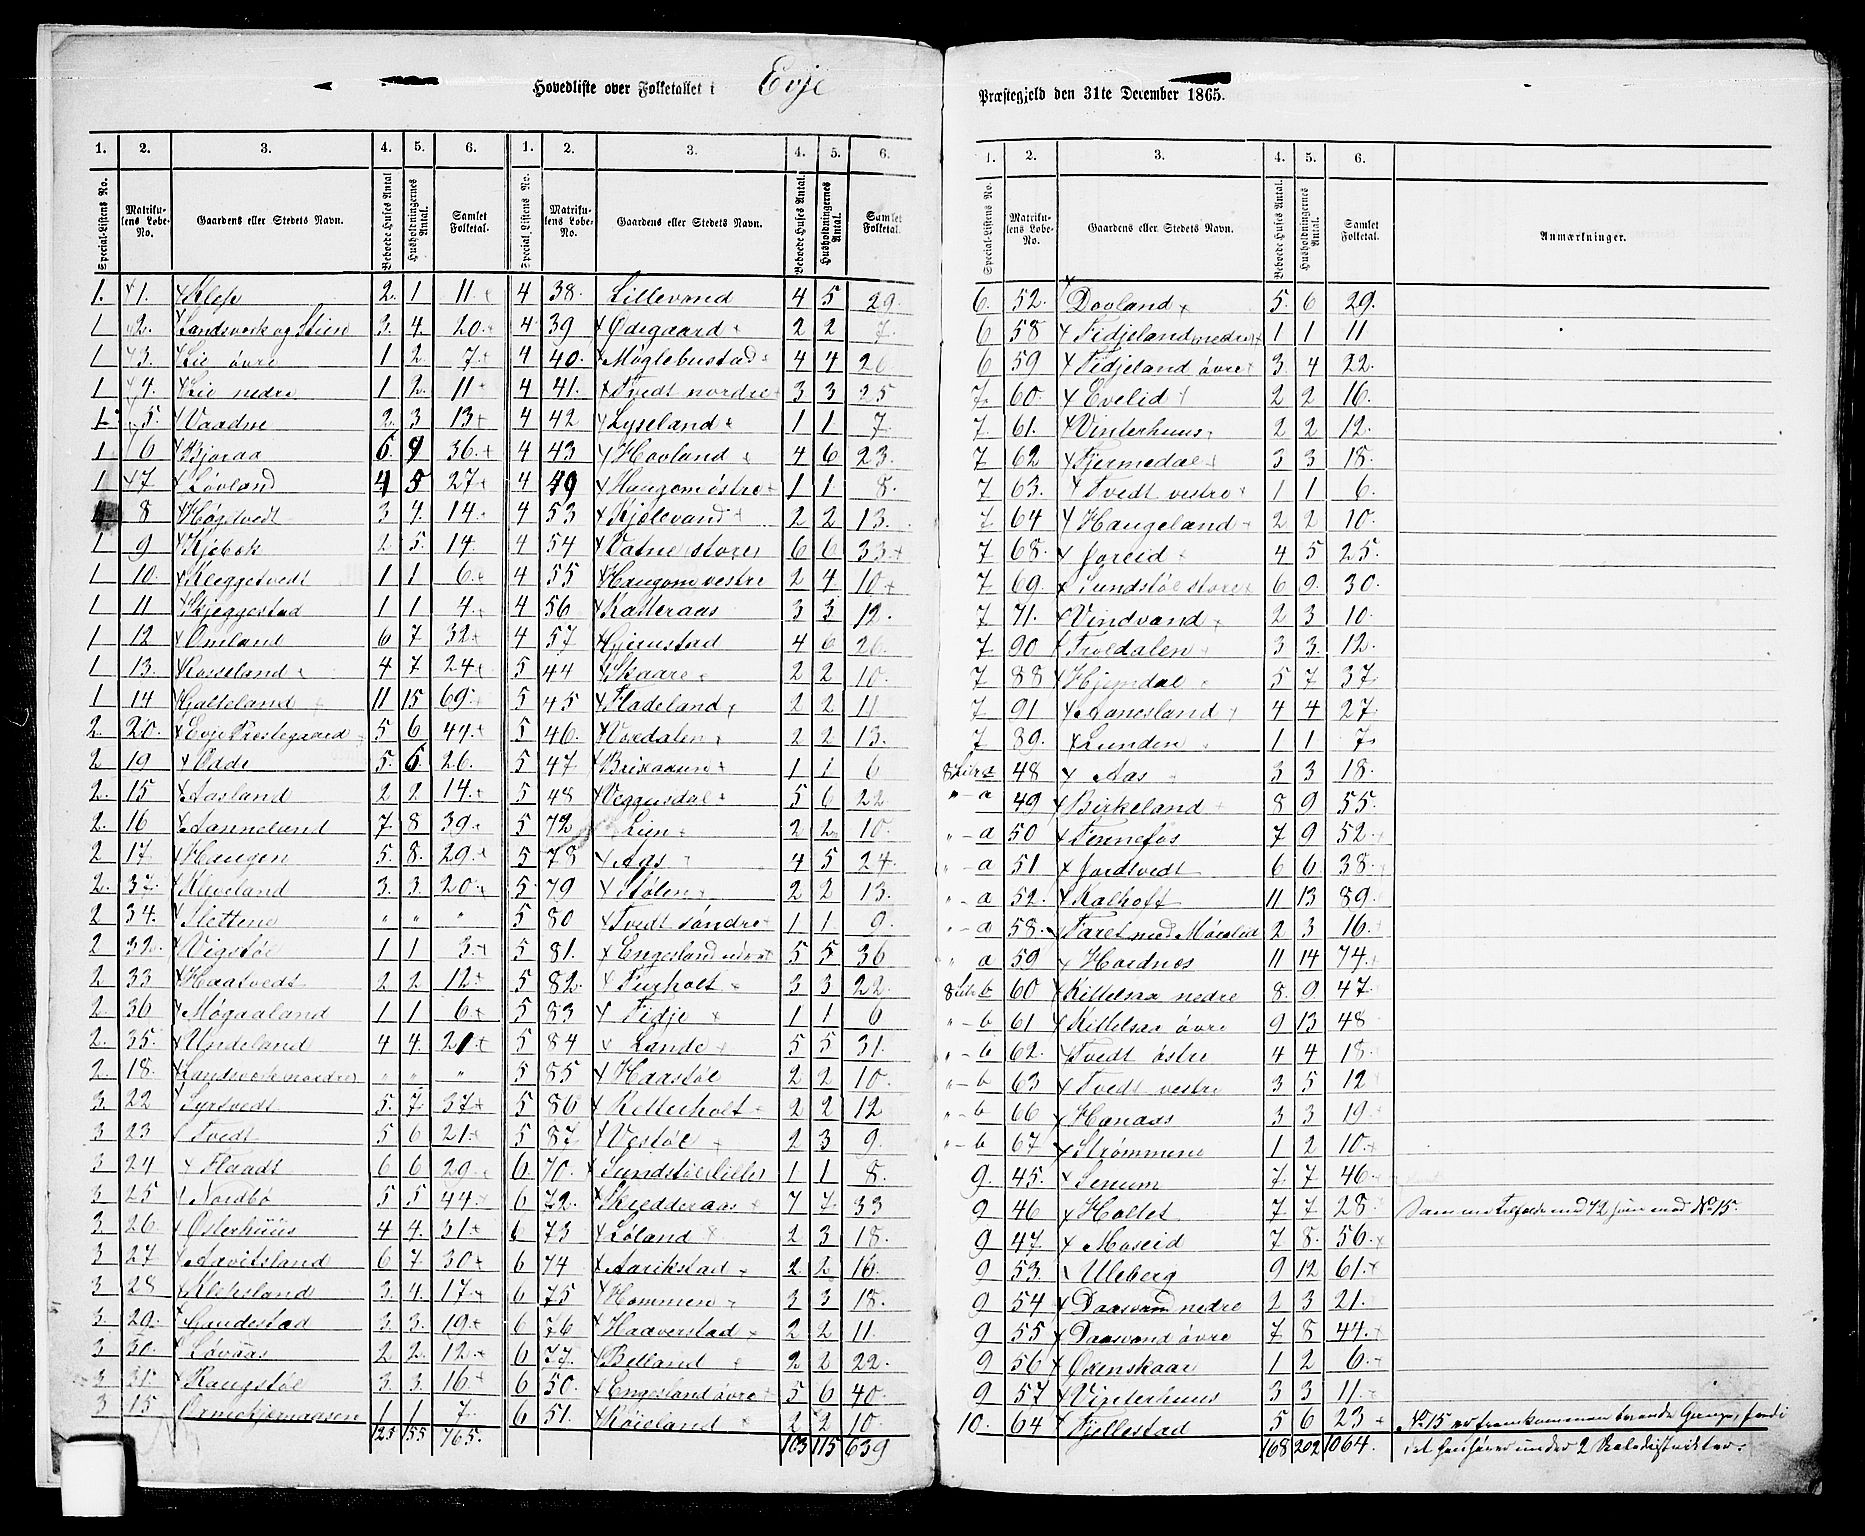 Hovedliste over Folketallet i Evje
Præstegjeld den 31te December 1865.
1. 2. 3. 4. 5. 6. 1. 2. 3. 4. 5. 6.
Special-Listens No. Matrikulens Løbe-No. Gaardens eller Stedets Navn. Beboede Huses Antal Husholdningernes Antal. Samlet Folketal. Special-Listens No. Matrikulens Løbe-No. Gaardens eller Stedets Navn. Beboede Huses Antal. Husholdningernes Antal. Samlet Folketal.
1. 1. Klep 2. 1 11 4 38. Lillevand 4 5 29.
1 2. Landsverk og Stien 3. 4. 20. 4 39 Ødegaard 2 2 7.
1 3. Lie øvre 1 2. 7. 4 40. Møglebustad 4 4 26
1 4. Lie nedre 1 2. 11 4 41. Tvedt nordre 3 3 25
1 5. Vaadne 2 3 13 4 42 Lyseland 1 1 7.
1 6 Bjoraa 6. 9 36. 4 43 Hovland 4 6 23.
1 7 Løvland 4 5 27 4 49 Haugom østre 1 1 8.
8 Høgtvedt 3 4. 14. 4 53 Kjølevand 2 2 13.
1 9 Kjebek 2 5. 14 4 54 Vatne store 6 6 33
1 10. Kleggetvedt 1 1 6. 4 55 Haugom vestre 2 4 10
1 11 Skjeggestad 1 1 4. 4 56 Katteraas 3 3 12.
1 12 Omland 6 7 32 4 57 Gjerustad 4 6 26.
1 13. Rosseland 4 7 24 5 44 Skaare 2 2 10.
1 14 Galteland 11 15 69. 5 45 Fladeland 2 2 11
2. 20. Evje Prestegaard 5 6 44. 5 46. Vordalen 2 2 13.
2 19 Odde 5. 6. 26. 5 47 Brixaasen 1 1 6
2. 15 Aasland 2 2 14. 5 48 Veggusdal 5 6 22
2. 16 Aanneland 7. 8 39. 5 72 Lien 2 2 10.
2 17 Haugen 5. 8. 29. 5 78 Aas 4 5 24
2. 37. Kaveland 3. 3. 20. 5 79 Stølen 2 2 13.
2 34. Slettene " " " 5 80 Tvedt søndre 1 1 9.
2 32. Vigstøl 1 1 3. 5 81. Engesland nedre 5 5 36
2 33 Haatvedt 2 2 12 5 82. Furholt 3 3 22
2 36 Møgaaland 1 1 6 5 83 Fidje 1 1 6
2. 35. Undeland 4 4. 21 5 84 Lande 5 5 31.
2. 18. Landsverk nordre " " " 5 85 Haastøl 2 2 10.
3. 22 Syrtvedt 5. 7. 37 5 86 Ketterholt 2 2 12
3 23 Tvedt 5 6 21. 5 87. Vestøl 2 3 9.
3 24 Flaadt 6 6 29 6. 70. Sundstøl lille 1 1 8.
3 25 Nordbø 5 5 44 6 72. Skredderaas 7 7 33
3 26 Østerhuus 4 4. 31 6 73 Løland 2 3 18.
3 27 Aavitsland 6 7. 30 6 74 Aarikstad 2 2 16.
3 28 Klepsland 3. 4. 17. 6 75 Hommen 3 3 18.
3 29. Gaudestad 3 3. 19 6 76 Haaverstad 2 2 11.
3 30. Løvaas 2 2. 12. 6 77. Belland 2 2 22.
3 31. Kaugstøl 3. 3. 16 6 50. Engesland øvre 5 6 40.
3 15 Ormekjernaasen 1 1 7. 6 51. Røieland 2 2 10.
123 155 765. 103 115 639
1. 2. 3. 4. 5. 6.
Special-Listens No. Matrikulens Løbe-No. Gaardens eller Stedets Navn. Beboede Huses Antal. Husholdningernes Antal. Samlet Folketal. Anmærkninger.
6. 52. Dovland 5. 6 29.
6 58 Fidjeland nedre 1 1 11
6 59 Fidjeland øvre 3 4 22.
7. 60. Evelid 2 2 16.
7. 61. Vinterhuus 2 2 12.
7 62 Fjermedal 3 3 18.
7 63. Tvedt vestre 1 1 6.
7 64 Haugeland 2 2 10.
7 68. Joreid 4 5 25.
7 69. Sundstøl store 6 9. 30.
7 71. Vindvand 2 3 10.
7 90 Troldalen 3 3. 12.
7 88 Hjemdal 5 7 37.
7 91 Aanesland 4 4 27.
7 89. Lunden 1 1 7.
8 Litr a 48 Aas 3 3 18.
" - a 49 Birkeland 8 9 55.
" - a 50 Fennefos 7 9 52.
" - a 51 Jordtvedt 6 6. 38.
" - a 52. Kalhoft 11 13 89.
" - a 58. Faret med 2 3 16.
" - a 59 Hordnæs 11 14 74.
8 Litr b 60 Kittelsaa nedre 8. 9 47
" - b 61 Kittelsaa øvre 9 13 48
" - b 62. Tvedt østre 4 4 18.
" - b 63 Tvedt vestre 3 5 12
" - b 66 Hanaas 3 3 19
" - b 67 Strømmene 1 2 10.
9. 45. Senum 7. 7 46
9 46 Holtet 7 7 28 No 15.
9 47 Moseid 7 8. 56.
9 53. Uleberg 9 12 61.
9 54 Daasvand nedre 2 3 21.
9 55 Daasvand øvre 7. 8 44.
9 56 Oxenskaar 1 2 6.
9 57 Vinterhuus 3 3 11.
10. 64 Fjellestad 5 6 23 No 15 er fremkommen
168 202 1064. under 2